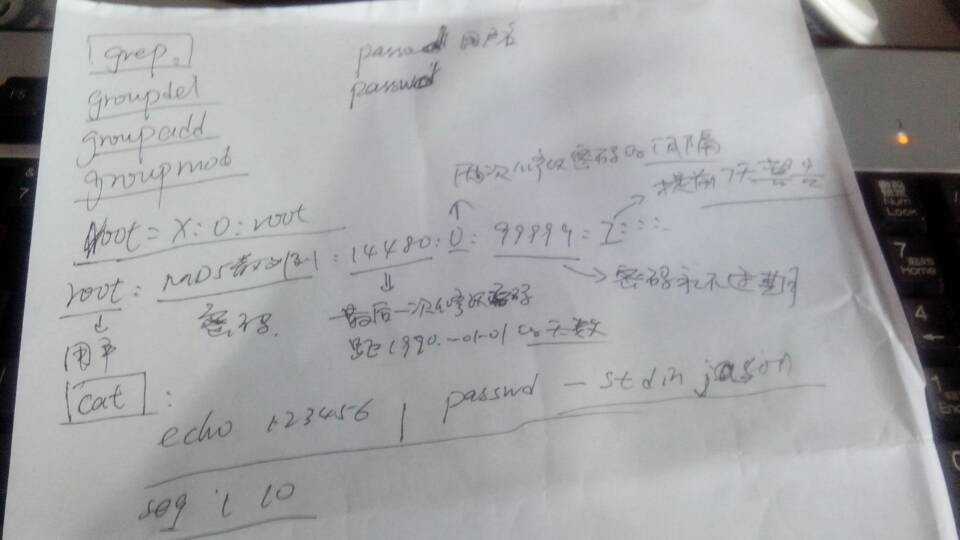 grep
passwd 用户名
groupdel
passwd
groupadd
groupmod
两次修改密码的间隔
提前7天
root = X : 0 : root
root : MD5 : 14480 : 0 : 99999 : 7 : : :
密码
最后一次修改密码
密码永不过期
用户
距1990-01-01的天数
cat :
echo 123456 | passwd - stdin jason
seq 1 10
Num Lock
7 Home
4
1 End